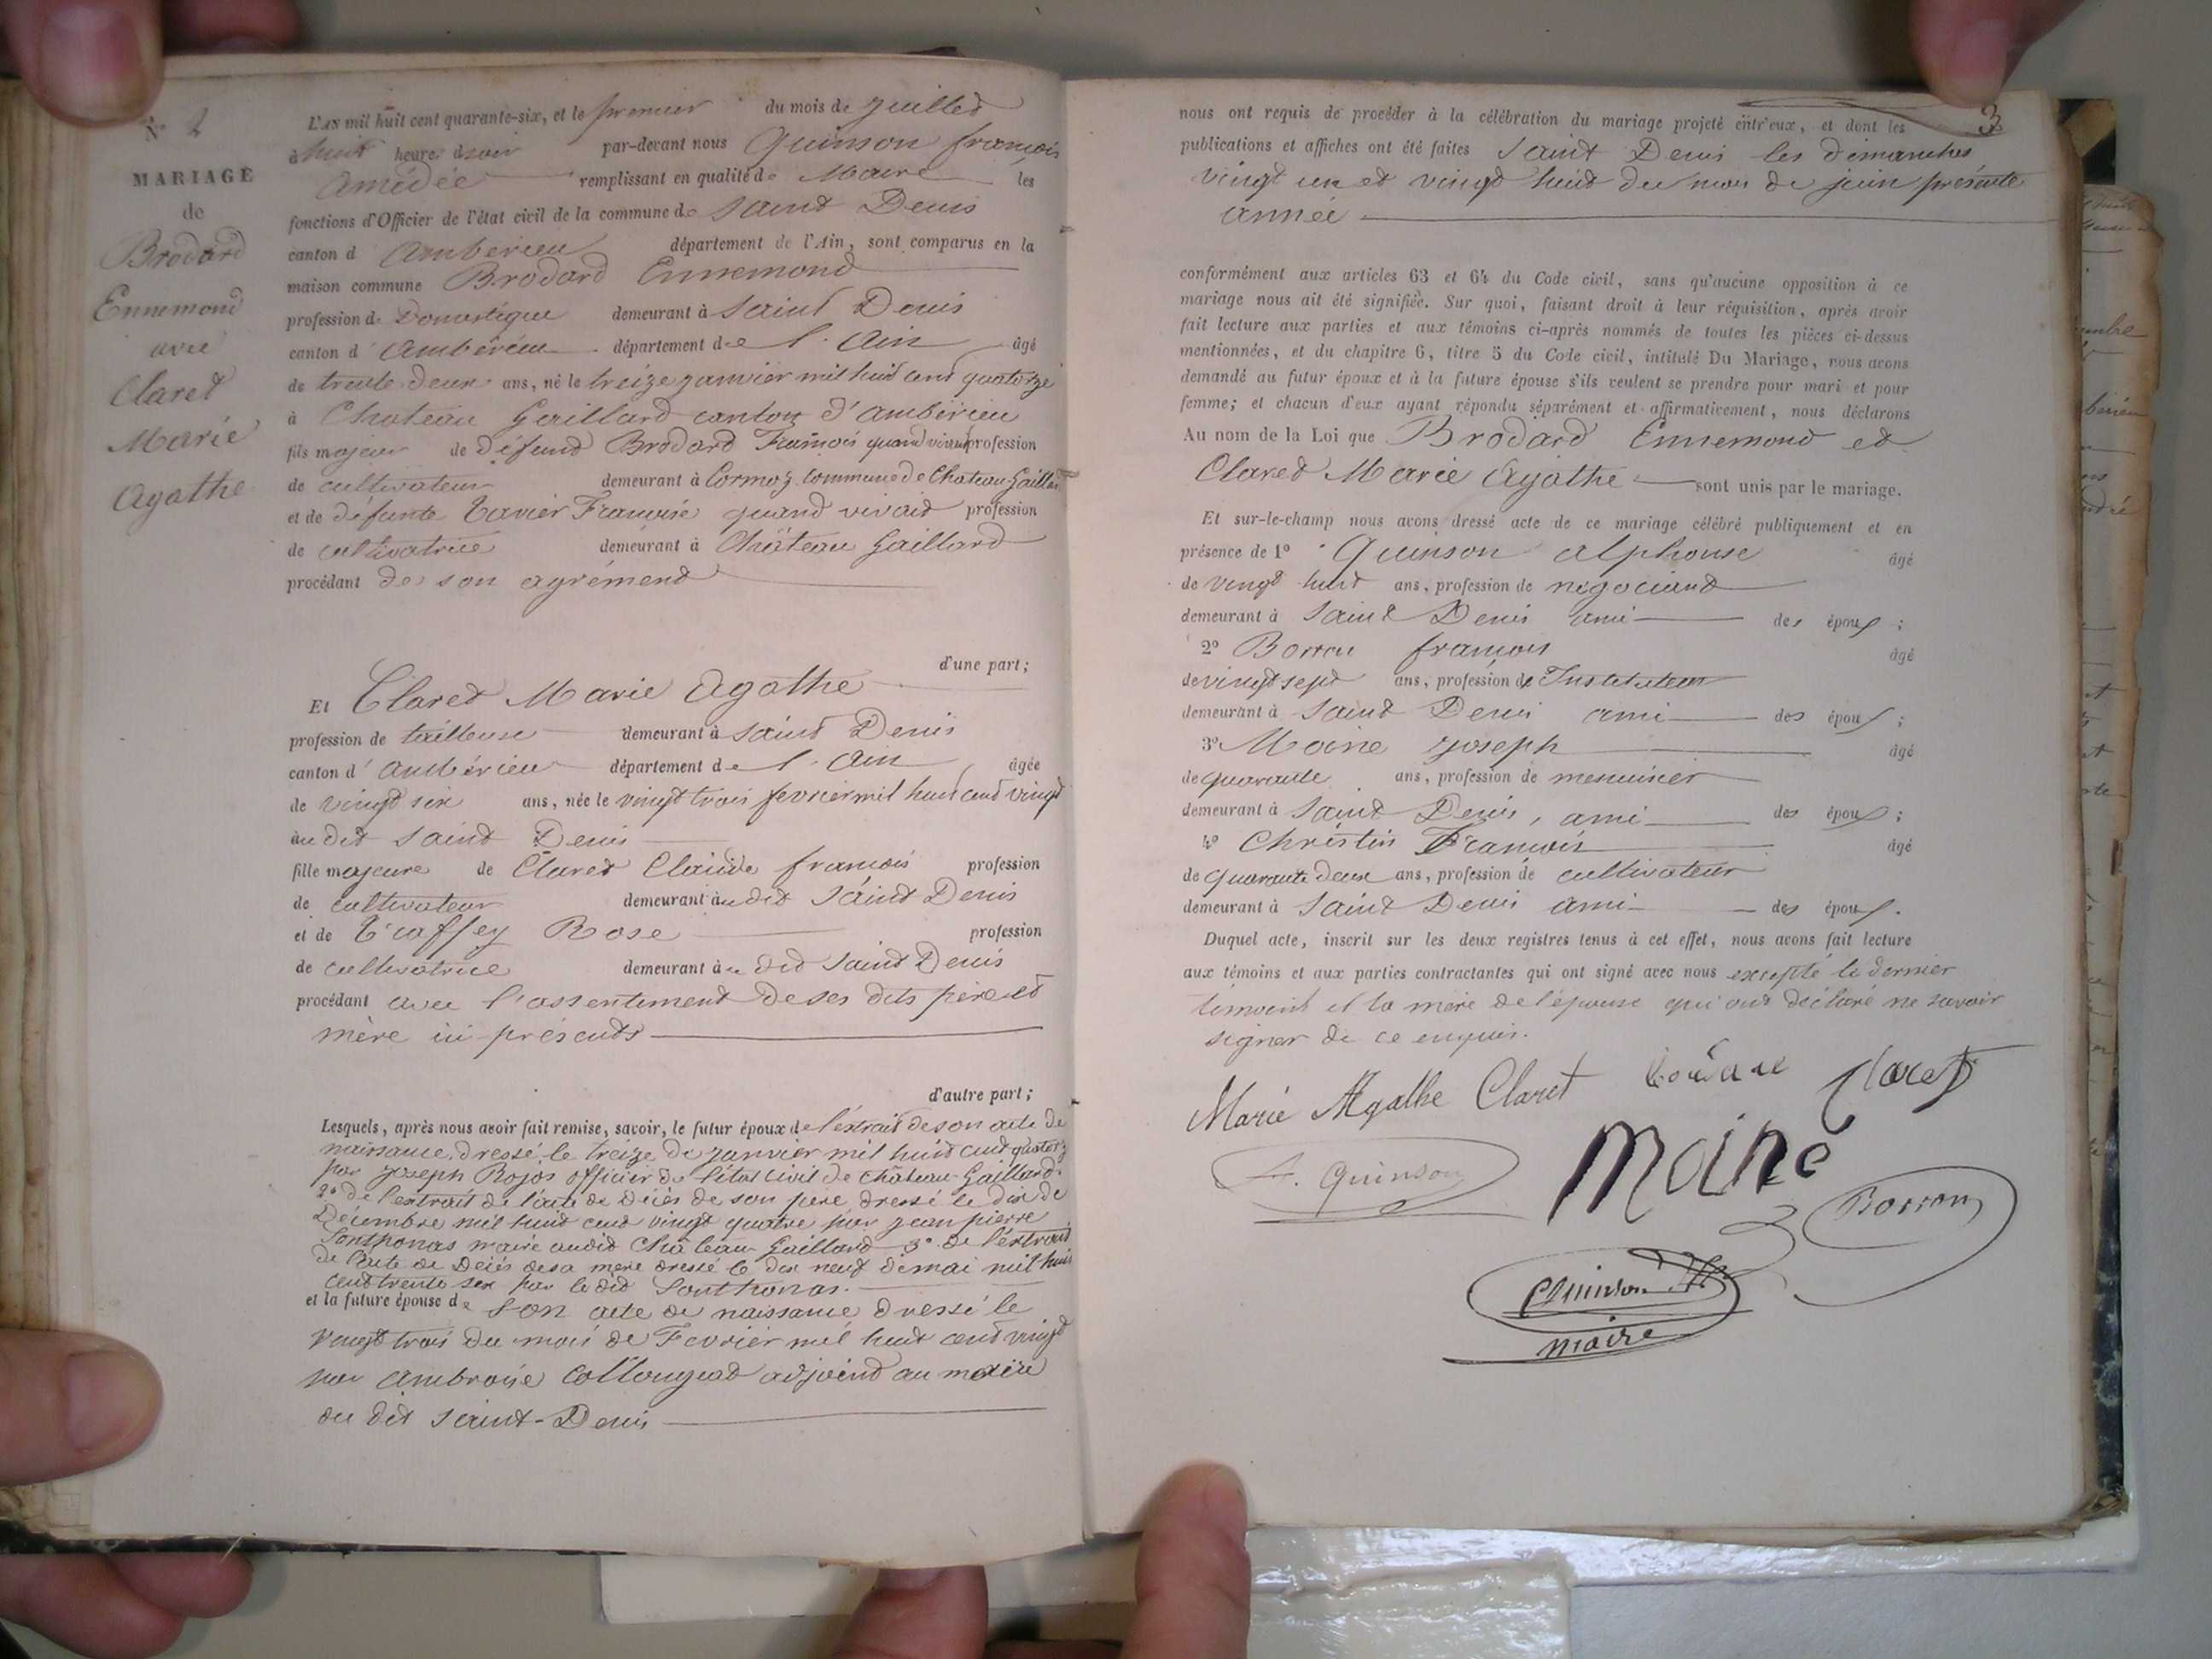 N° 2
MARIAGE
de
Brodard
Ennemond
avec
Claret
Marie
Agathe
L'AN mil huit cent quarante-six, et le premier du mois de Juillet
à huit heures dusoir par-devant nous Quinson françois
Amédée remplissant en qualité de Maire les
fonctions d'Officier de l'état civil de la commune de Saint Denis
canton d'Ambérieu département de l'Ain, sont comparus en la
maison commune Brodard Ennemond
profession de Domestique demeurant à Saint Denis
canton d'Ambérieu département de l'Ain âgé
de trente deux ans, né le treize janvier mil huit cent quatorze
à Chateau Gaillard canton d'ambérieu
fils majeur de défunt Brodard François quand vivait profession
de cultivateur demeurant à Cormoz commune de Chateau Gaillard
et de défunte Tavier Françoise quand vivait profession
de cultivatrice demeurant à Château Gaillard
procédant de son agrément
d'une part;
Et Claret Marie Agathe
profession de tailleuse demeurant à Saint Denis
canton d'Ambérieu département de l'Ain âgée
de vingt six ans, née le vingt trois fevrier mil huit cent vingt
au dit Saint Denis
fille majeure de Claret Claude françois profession
de cultivateur demeurant audit Saint Denis
et de Traffey Rose profession
de cultivatrice demeurant au dit Saint Denis
procédant avec l'assentement de ses dits père et
mère ici présents
d'autre part;
Lesquels, après nous avoir fait remise, savoir, le futur époux de l'extrait de son acte de
naissance dressé le treize de janvier mil huit cent quatorze
par Joseph Rojos officier de l'état civil de Château-Gaillard
2° de l'extrait de l'acte de décès de son père dressé le dix de
Décembre mil huit cent vingt quatre par Jean pierre
Sonthonas maire audit Château Gaillard 3° de l'extrait
de l'acte de décès desa mère dressé le dix neuf demai mil huit
cent trente six par le dit Sonthonas.
et la future épouse de son acte de naissance dressé le
vingt trois du mois de Fevrier mil huit cent vingt
par Ambroise Collonguat adjoint au maire
du dit Saint-Denis
3
nous ont requis de procéder à la célébration du mariage projeté entr'eux, et dont les
publications et affiches ont été faites Saint Denis les dimanches
vingt un et vingt huit du mois de juin présente
année
conformément aux articles 63 et 64 du Code civil, sans qu'aucune opposition à ce
mariage nous ait été signifiée. Sur quoi, faisant droit à leur réquisition, après avoir
fait lecture aux parties et aux témoins ci-après nommés de toutes les pièces ci-dessus
mentionnées, et du chapitre 6, titre 5 du Code civil, intitulé Du Mariage, nous avons
demandé au futur époux et à la future épouse s'ils veulent se prendre pour mari et pour
femme; et chacun d'eux ayant répondu séparément et affirmativement, nous déclarons
Au nom de la Loi que Brodard Ennemond et
Claret Marie Agathe sont unis par le mariage.
Et sur-le-champ nous avons dressé acte de ce mariage célébré publiquement et en
présence de 1° Quinson alphonse âgé
de vingt huit ans, profession de négociant
demeurant à Saint Denis ami des époux;
2° Borron françois âgé
de vingt sept ans, profession de Instituteur
demeurant à Saint Denis ami des époux;
3° Moine Joseph âgé
de quarante ans, profession de menuisier
demeurant à Saint Denis, ami des époux;
4° Christin François âgé
de quarante deux ans, profession de cultivateur
demeurant à Saint Denis ami des époux.
Duquel acte, inscrit sur les deux registres tenus à cet effet, nous avons fait lecture
aux témoins et aux parties contractantes qui ont signé avec nous excepté le dernier
témoint et la mère de l'épouse qui ont déclaré ne savoir
signer de ce enquis.
Marie Agathe Claret Claret
A. Quinson moine Borron
Quinson
maire